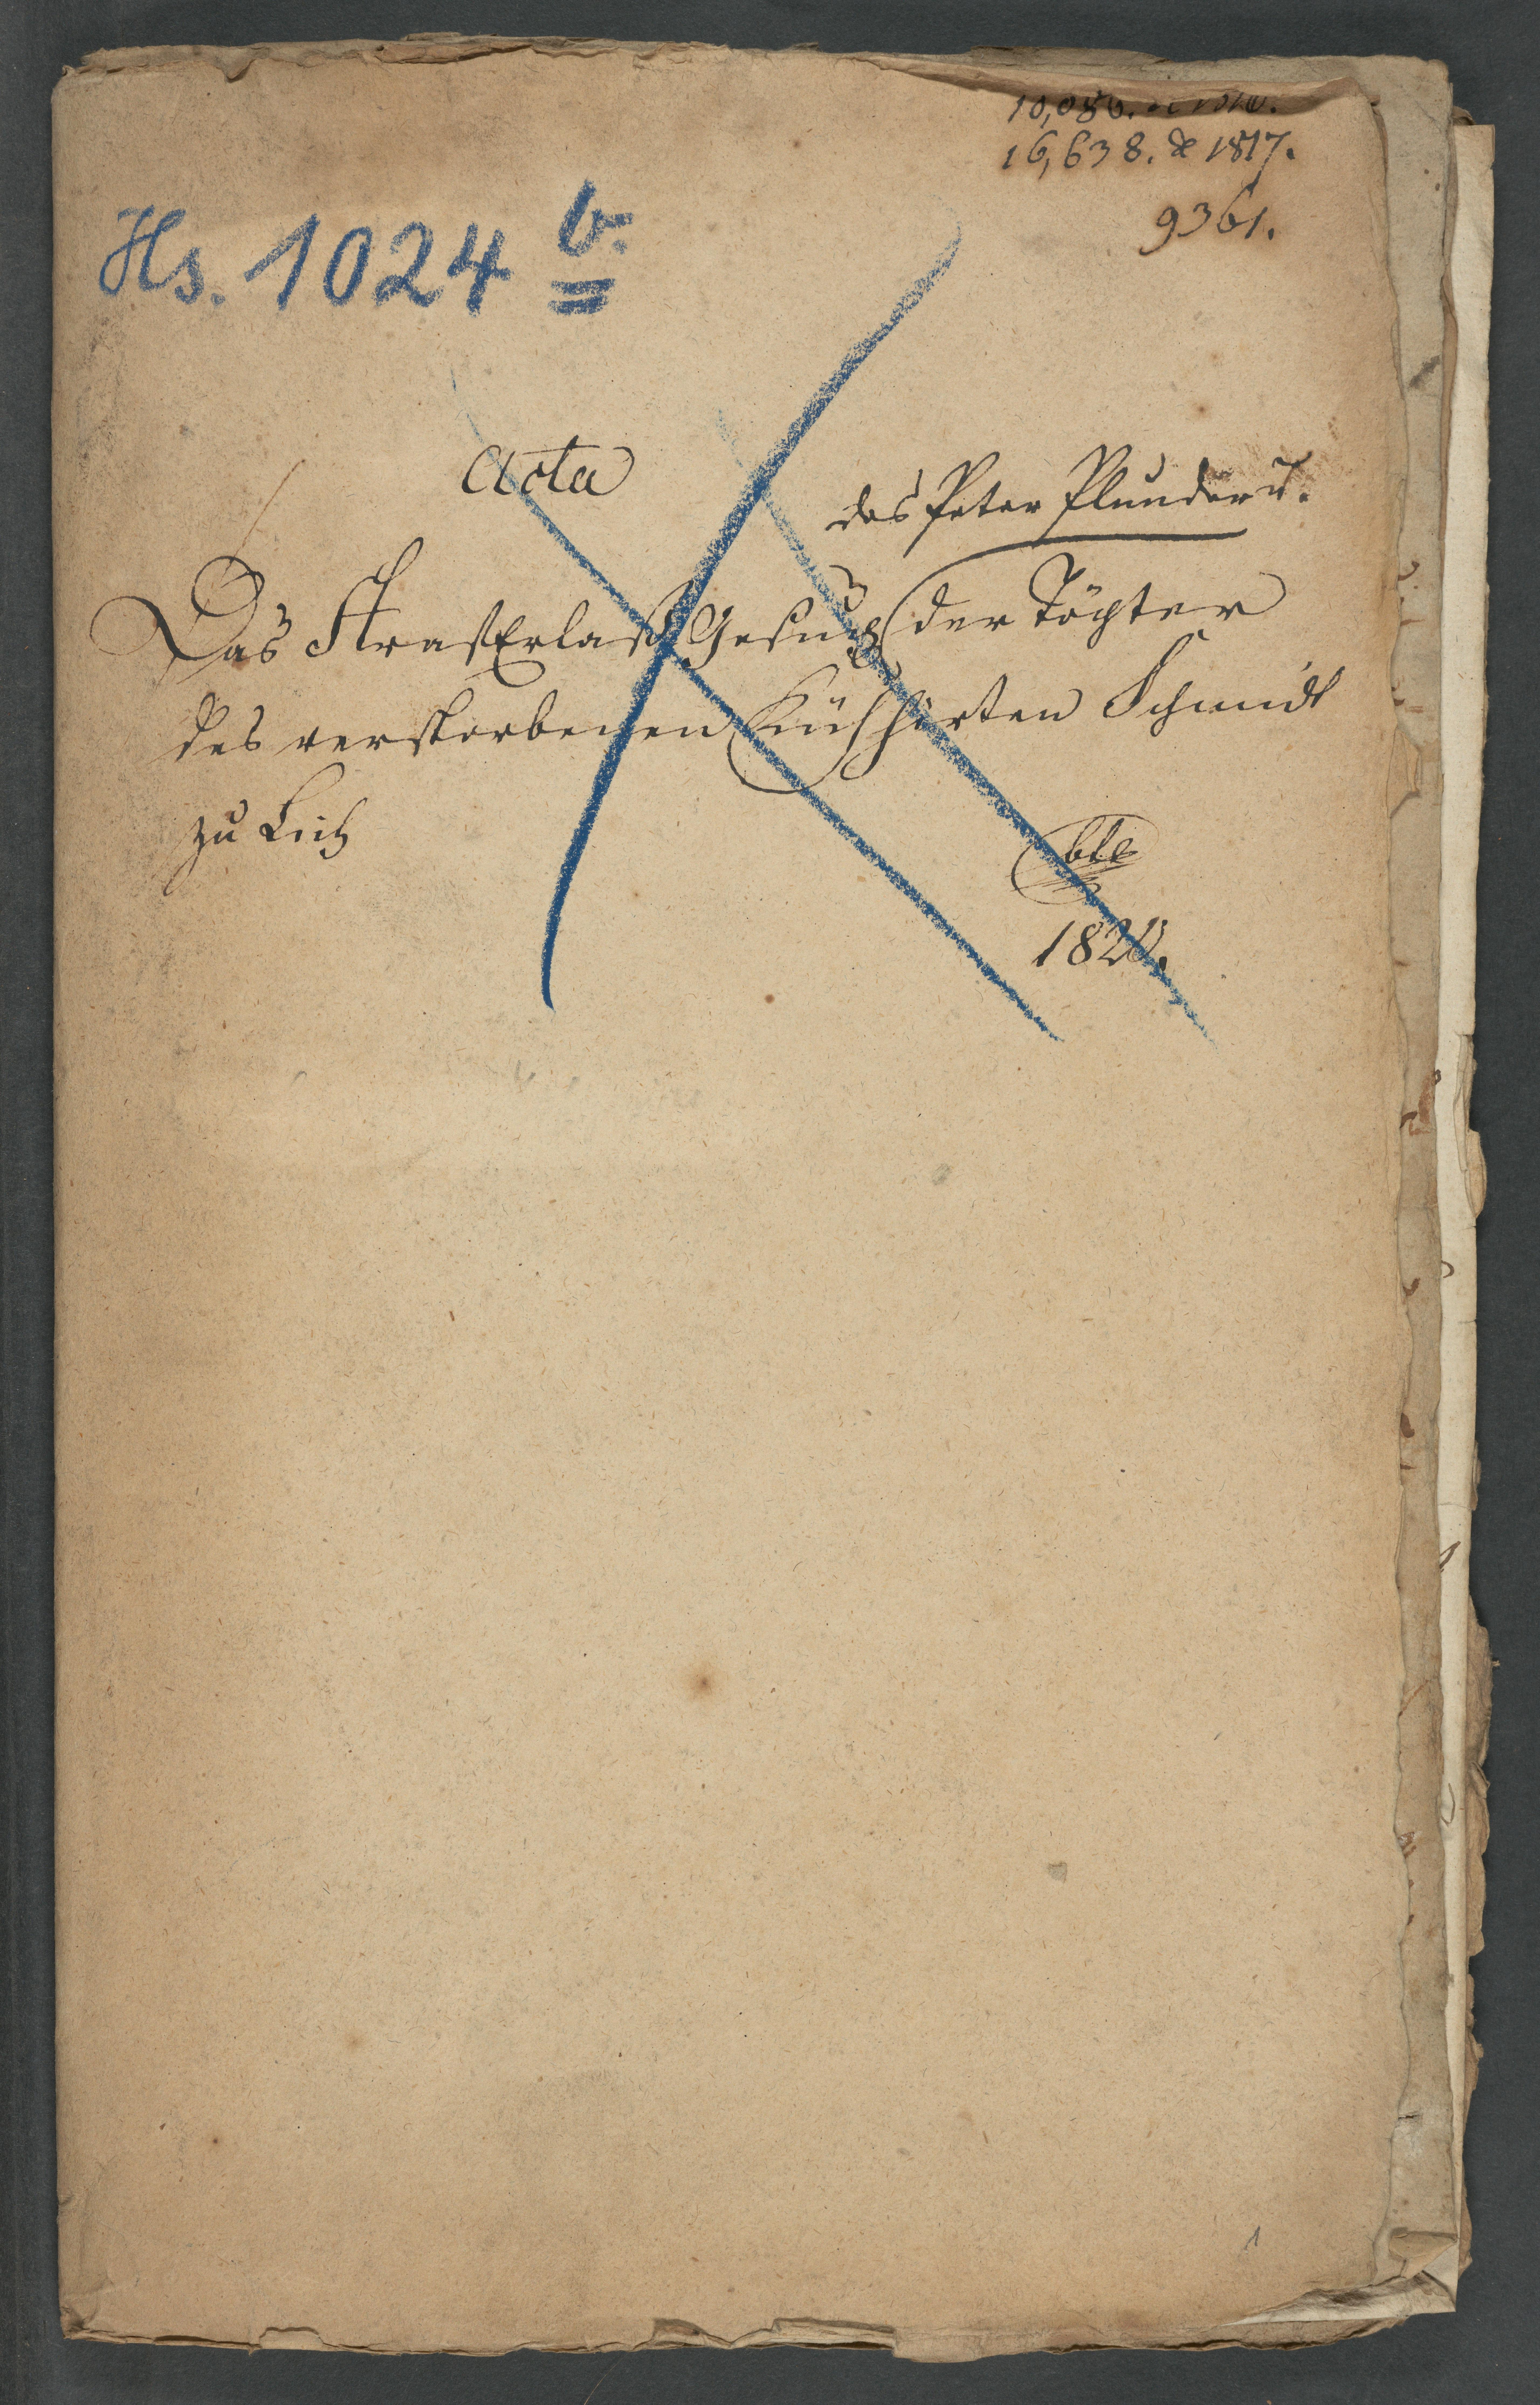 16,638. de 1817.
9361.
Hs. 1024 b.
Acta
des Peter Plunder u.
Das StrafErlaß Gesuch der Töchter
des verstorbenen Kühhirten Schmidt
zu Lich
1820.
1